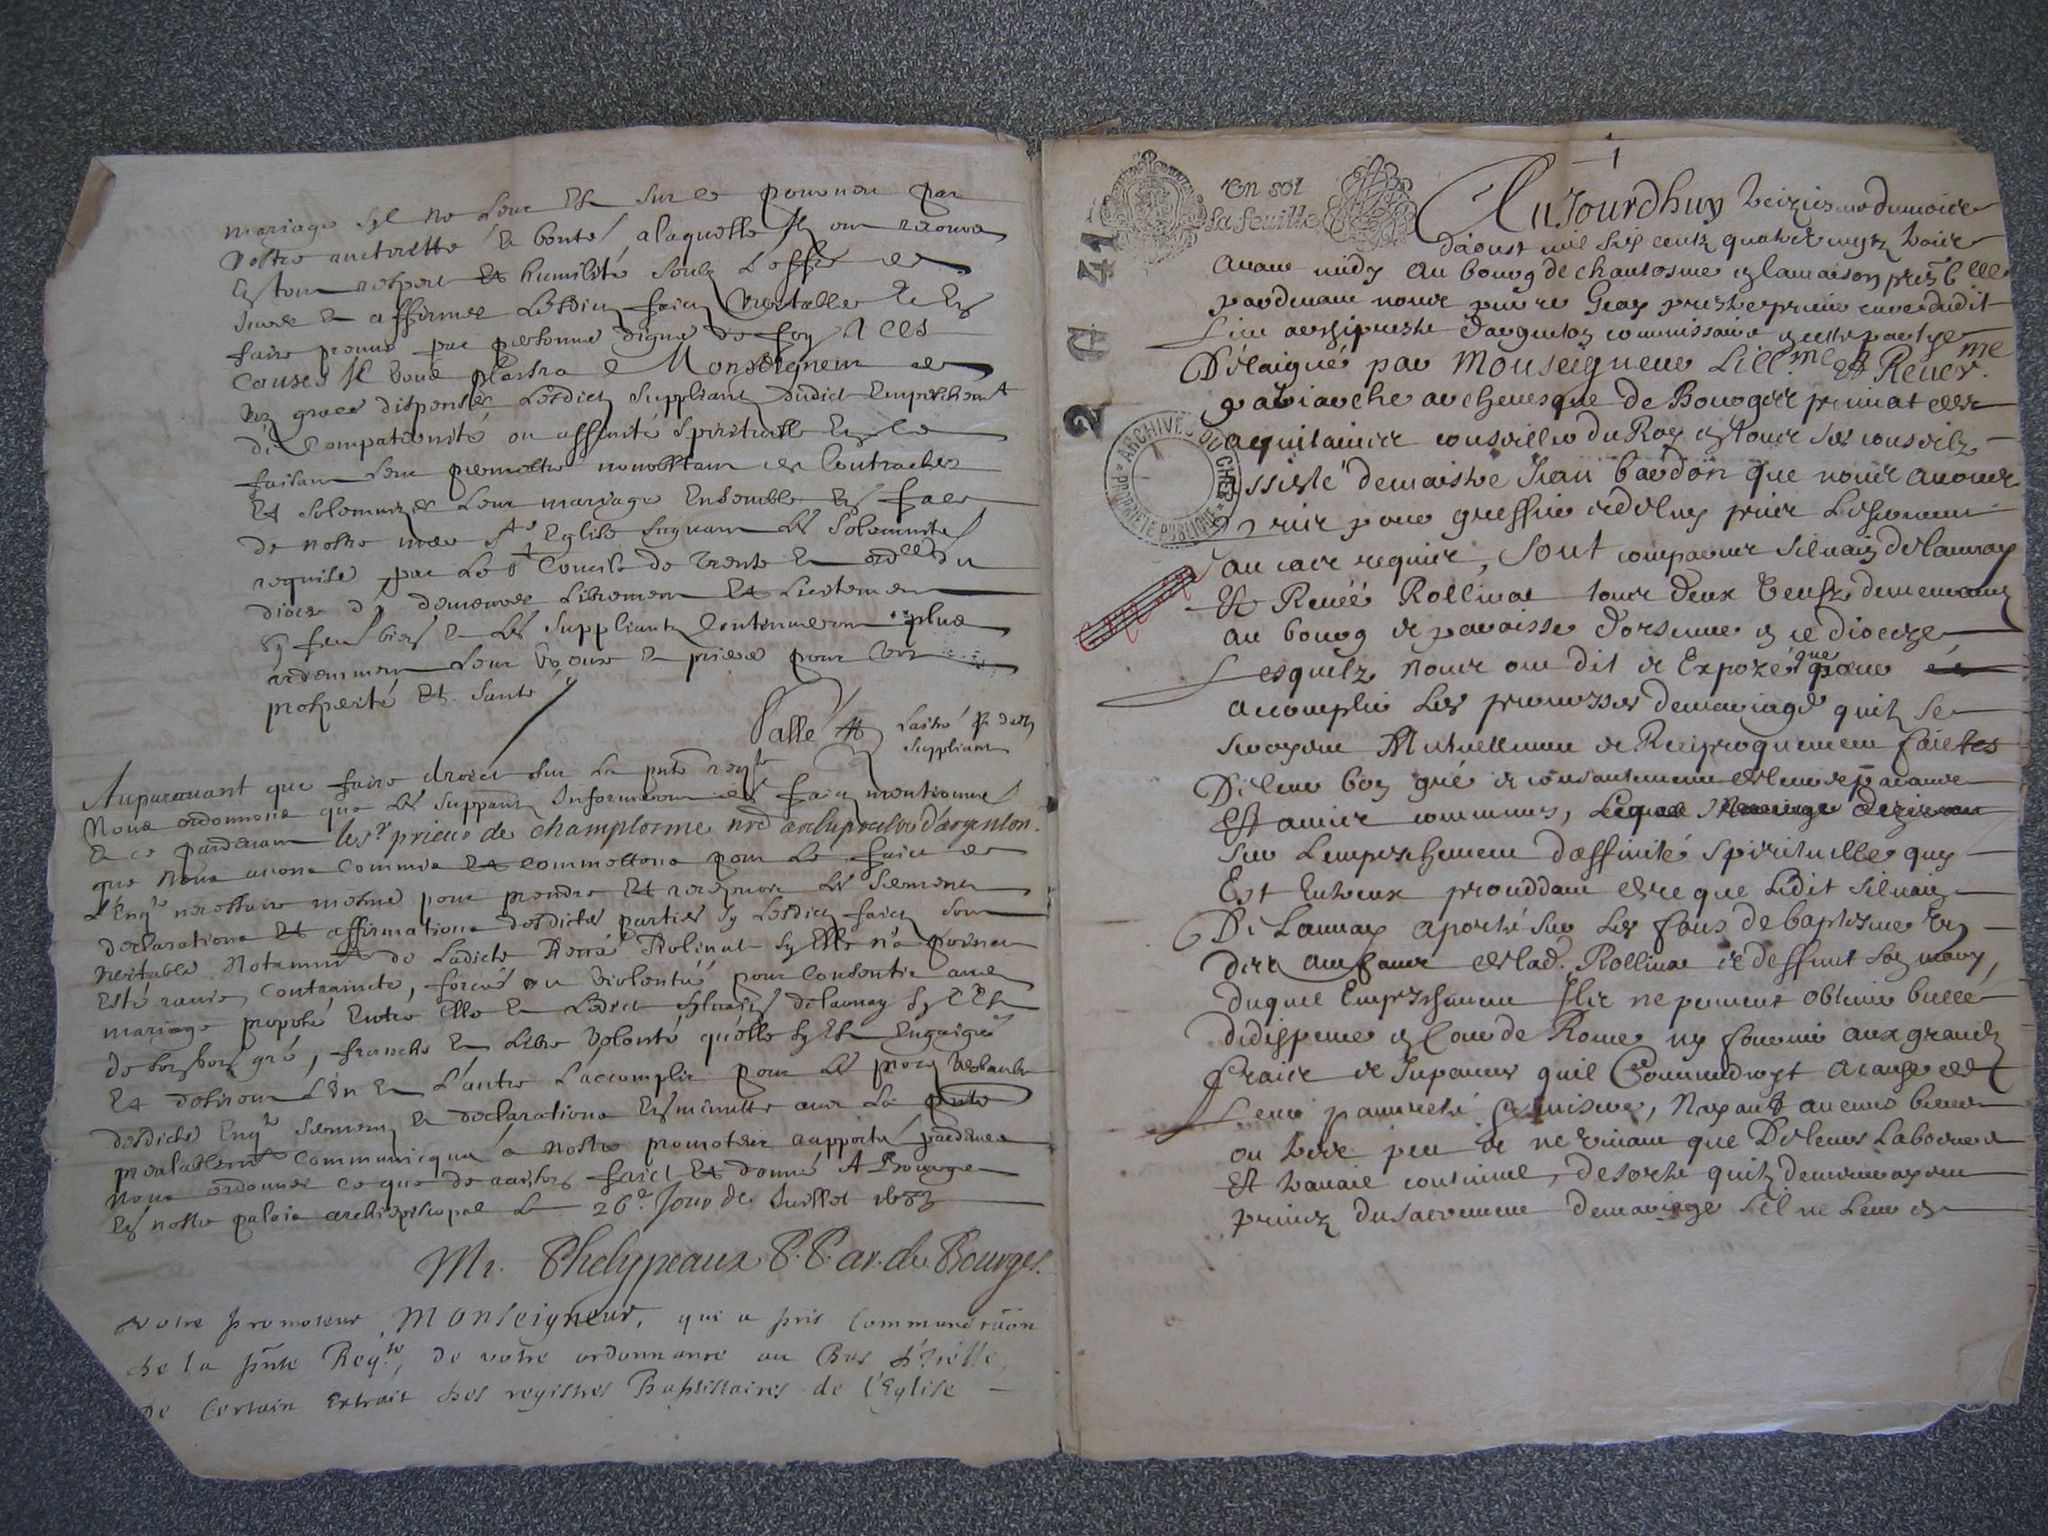 mariage syl ne leur est sur ce pourveu par
vostre auctorité et bonté, a laquelle Ils ont recours
En tout respect et humilité soubz l'offre de
Jurer et affirmer lesdictz faictz veritables et En
faire preuve par personne digne de foy A CES
Causes Il vous plaira Monseigneur de
voz graces dispenser lesdictz suppliantz dudict empeschemt
de Compaternité ou affinité spirituelle En ce
faisant leur permettre nonobstant de Contracter
Et solemnizer leur mariage Ensemble En face
de nostre mere ste Eglise suyvant les solemnités
requises par le st Concile de trente et
dioceze d'y demeurer librement Et licitement
et les suppliantz Continueront plus
ardemment leur voeux et prieres pour vostre
prosperité et santé
Palle
suppliant
Auparavant que faire droict sur la pnte reqte
Nous ordonnons que les supplians Informeront des faictz mentionnes
Et ce pardevant le sr prieur de champtosme nre archiprestre d'argenton
que Nous avons Commis Et commettons pour le faict de
l'Enqte necessaire mesme pour prendre Et recepvoir les sermens
declarations Et affirmations desdictes parties sy lesdictz faictz sont
veritables Notamment de Ladicte Renée Rolinat sy Elle n'a poinct
Esté ravie, Contraincte, forcée ou violentée pour Consentir au
mariage proposé Entre Elle et Ledict sylvain delaunay sy C'Est
de son bon gré, franche et libre volonté quelle sy Est Engaigée
Et desirent L'un et L'autre L'accomplir pour le procez verbal
desdictes Enqte sermens et declarations En minutte avec la pnte
prealablemt Communicqué a nostre promoteur rapporté pardevers
Nous ordonner ce que de raison faict Et donné A Bourges
En nostre palais archiepiscopal le 26e Jour de Juillet 1683
Mr. Phelypeaux P. P. ar. de Bourges.
Votre promoteur, Monseigneur, qui a pris Communicãon
de la pnte Reqte, de votre ordonnance au Bas d'Icelle,
De Certain Extrait des registres Baptistaires de l'Eglise
1
en sol
la feuille
2 G 41
ARCHIVES DU CHER
PROPRIETE PUBLIQUE
Aujourdhuy treiziesme du mois
d'aoust mil six centz quatre vingtz trois
avant midy au bourg de chantosme en la maison presb
pardevant nous pierre Gray prestre prieur curé dudit
Lieu archiprestre d'argenton commissaire en cette partye
Delaigué par Monseigneur Lill.me et Rever.me
patriarche archevesque de Bourges primat des
aquitaines conseiller du Roy en tous ses conseilz
assisté de maistre Jean bardon que nous avons
pris pour greffier et deluy pris Leserment
au cas requis, Sont comparus Silvain Delaunay
Et Renée Rollinat tous deux veufz demeurans
au bourg et paroisse d'orsenne en ce dioceze
Lesquelz nous ont dit et Expozé que pour
accomplir Les promesses demariage quilz se
seroyent Mutuellement et Reciproquement faictes
De leur bon gré et consantement de leurs parans
Et amis communs,
sur Lempeschement d'affinité spirituelle quy
Est Entreux proceddant de ce que Ledit Silvain
De Launay a porté sur Les fons de baptesme Un
des anfans de lad. Rollinat et deffunt son mary,
duquel Empeschement Ils ne peuvent obtenir bulle
de dispense en Cour de Rome ny fournir aux grandz
fraicz et despances quil Conviendroyt a cause de
Leur pauvreté et misere, Nayant aucuns biens
ou tres peu et ne vivant que De leurs Labeurs
Et travail continuel, de sorte quilz demeureroyent
privez du sacrement demariage s'il ne leur est